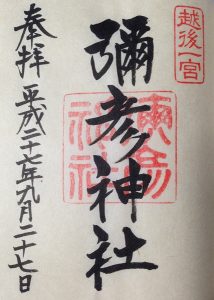 越後一宮
彌彦神社
奉拝 平成二十七年九月二十七日